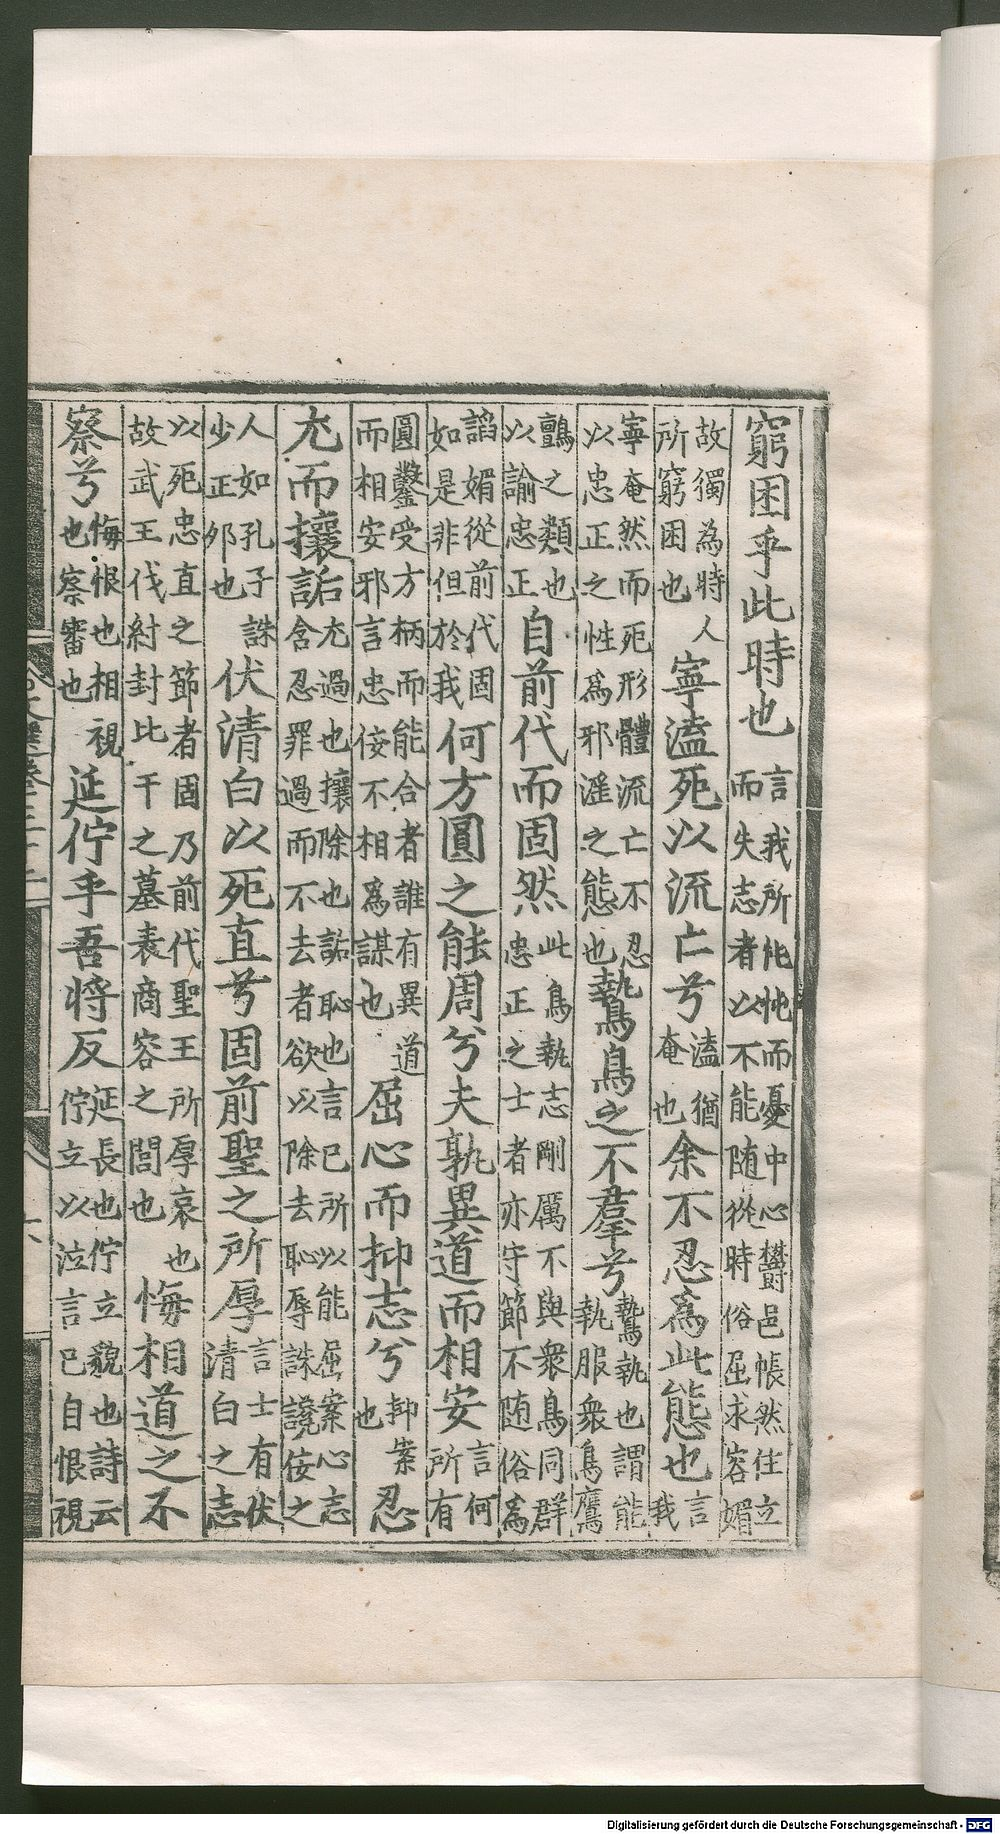 窮困乎此時也言我所㤞忳而憂中心鬱邑悵然住立而失志者以不能随從時俗屈求容媚
故獨為時人所窮困也寧溘死以流亡兮溘猶奄也余不忍爲此態也言我
寧奄然而死形體流亡不忍以忠正之性爲邪淫之態也鷙鳥之不羣兮鷙執也謂能執服衆鳥鷹
鸇之類也以諭忠正自前代而固然此鳥執志剛厲不與衆鳥同群忠正之士者亦守節不随俗爲
謟媚從前代固如是非但於我何方圓之能周兮夫孰異道而相安言何所有
圓鑿受方柄而能合者誰有異道而相安邪言忠佞不相爲謀也屈心而抑志兮抑案也忍
尤而攘詬尤過也攘除也詬恥也言已所以能屈案心志含忍罪過而不去者欲以除去恥辱誅讒佞之
人如孔子誅少正夘也伏清白以死直兮固前聖之所厚言士有伏清白之志
以死忠直之節者固乃前代聖王所厚哀也故武王伐紂封比干之墓表商容之閭也悔相道之不
察兮悔恨也相視也察審也延佇乎吾將反延長也佇立貌也詩云佇立以泣言已自恨視
Digitalisierung gefördert durch die Deutsche Forschungsgemeinschaft - DFG